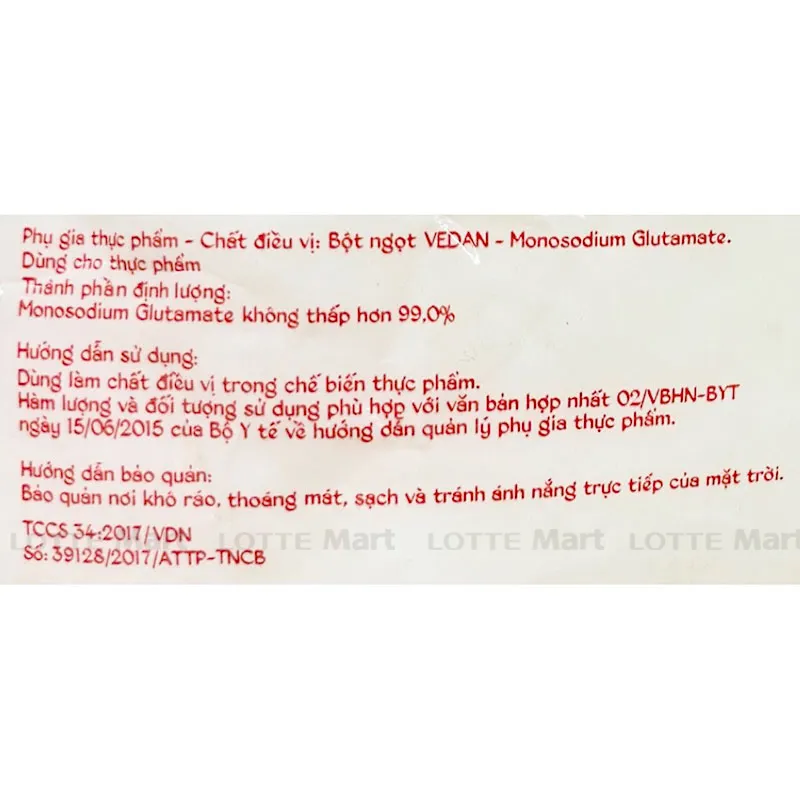 Phụ gia thực phẩm - Chất điều vị: Bột ngọt VEDAN - Monosodium Glutamate.
Dùng cho thực phẩm
Thành phần định lượng:
Monosodium Glutamate không thấp hơn 99,0%
Hướng dẫn sử dụng:
Dùng làm chất điều vị trong chế biến thực phẩm.
Hàm lượng và đối tượng sử dụng phù hợp với văn bản hợp nhất 02/VBHN-BYT
ngày 15/06/2015 của Bộ Y tế về hướng dẫn quản lý phụ gia thực phẩm.
Hướng dẫn bảo quản:
Bảo quản nơi khô ráo, thoáng mát, sạch và tránh ánh nắng trực tiếp của mặt trời.
TCCS 34:2017/VDN
LOTTE Mart LOTTE Mart LOTTE Mart LOTTE Mart
Số: 39128/2017/ATTP-TNCB